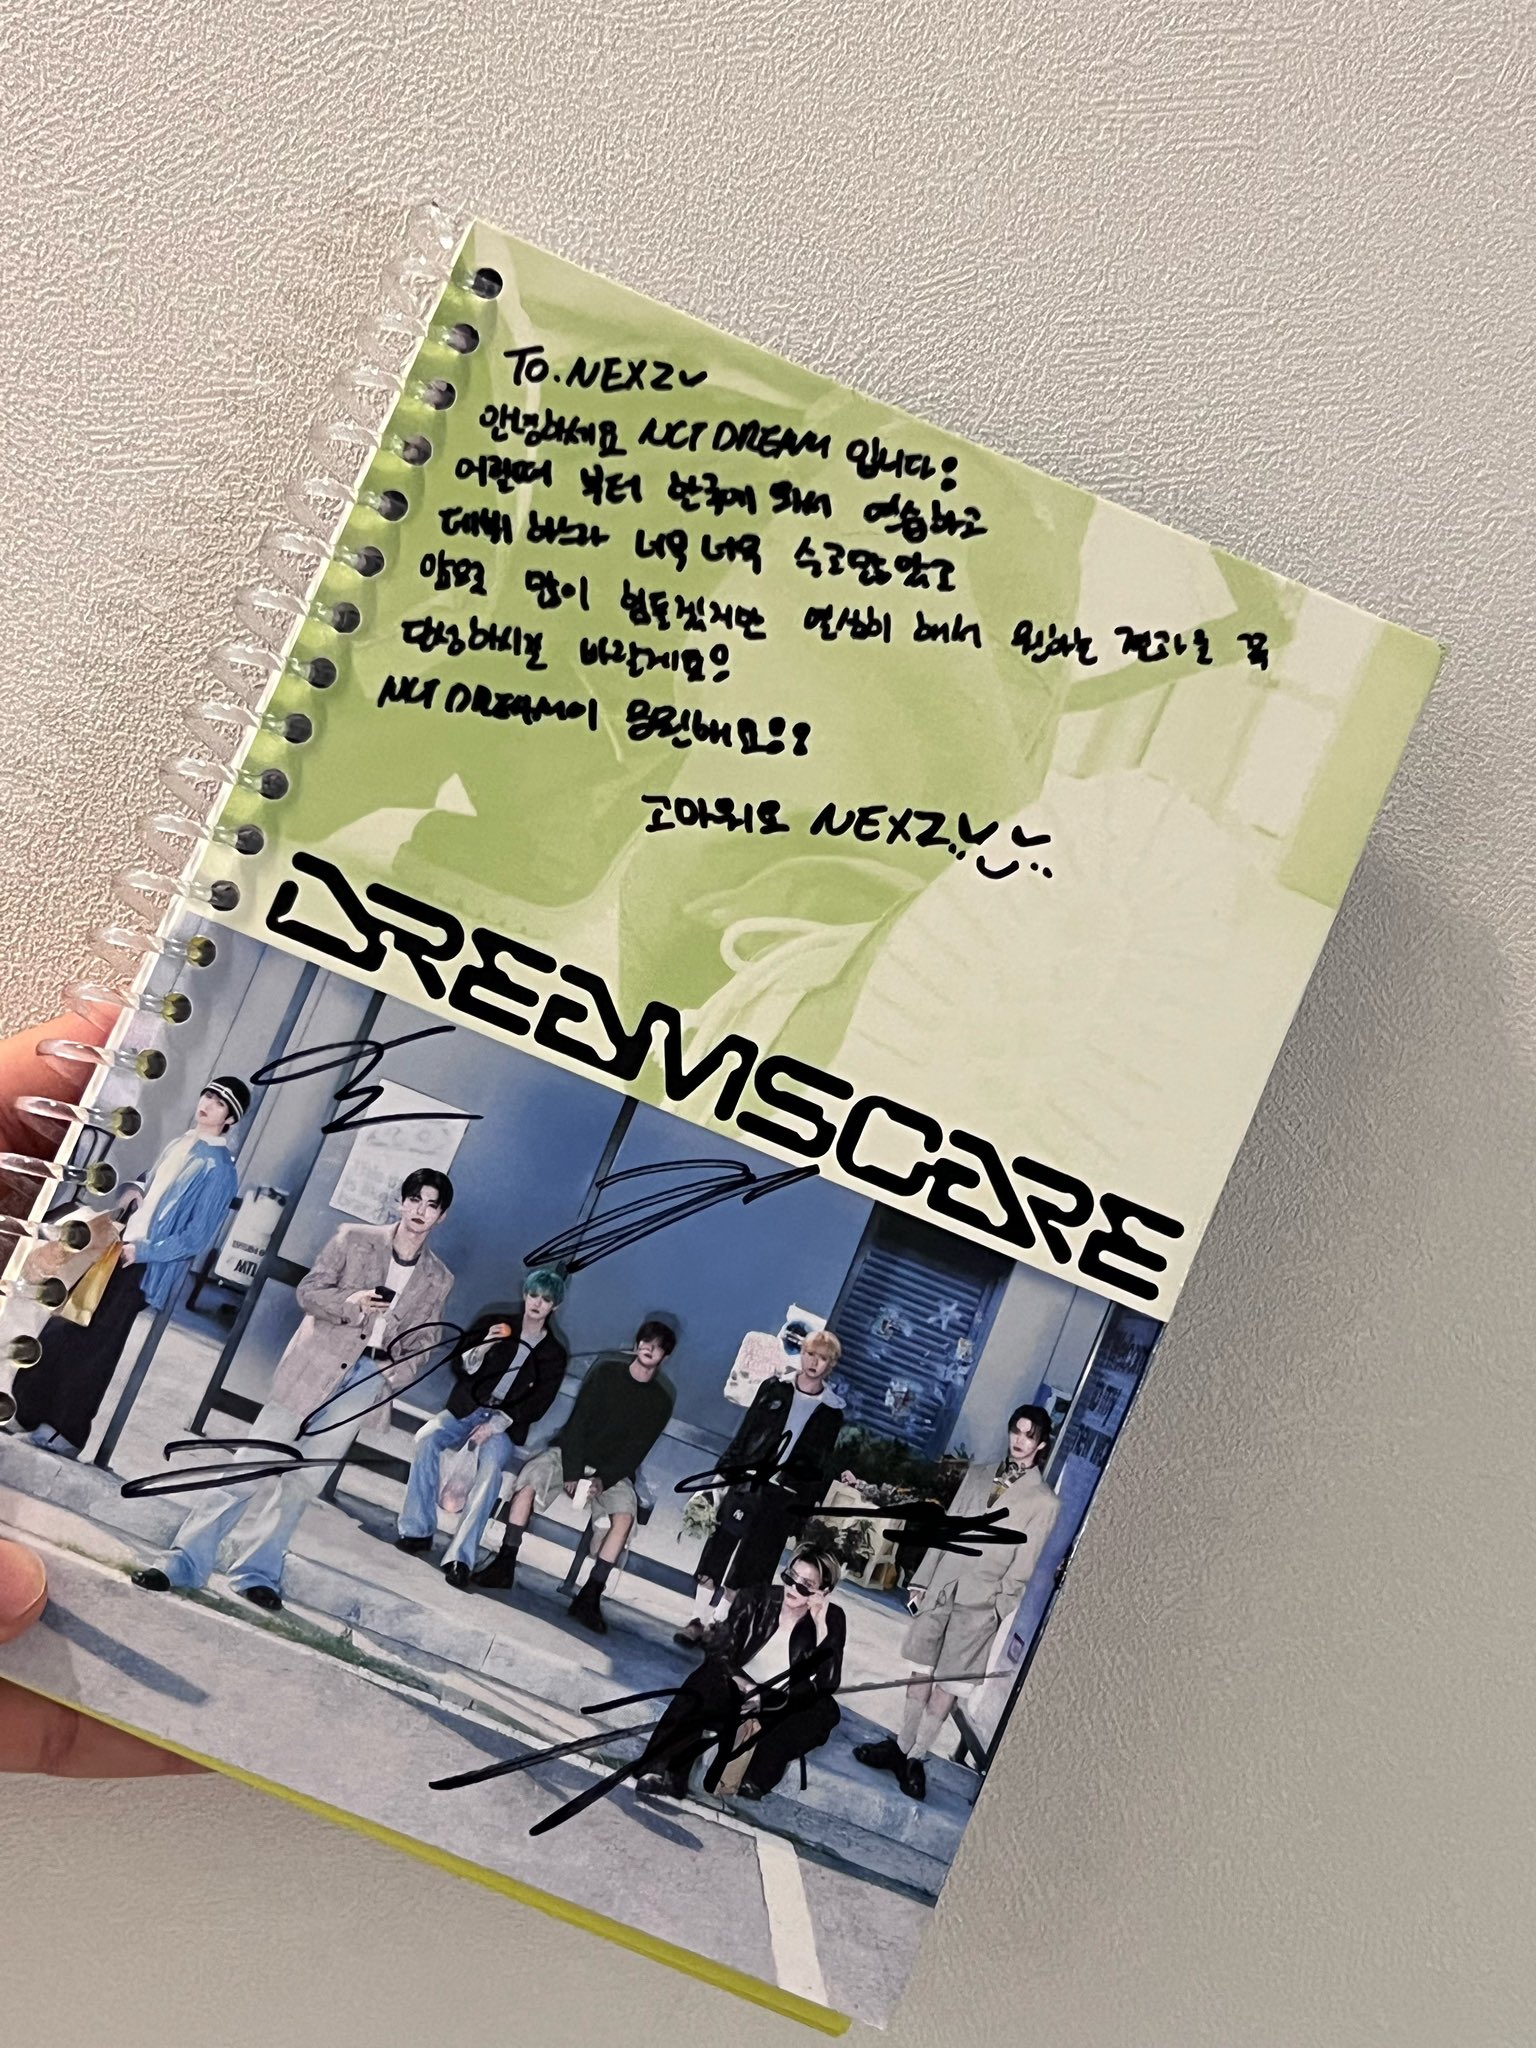 TO. NEXZ
안녕하세요 NCT DREAM 입니다!
어릴때 부터 한국에 와서 연습하고
데뷔 하느라 너무 너무 수고많았고
앞으로 많이 힘들겠지만 열심히 해서 원하는 결과를 꼭
달성하시길 바랄게요!
NCT DREAM이 응원해요!!
고마워요 NEXZ
DREAMSCAPE